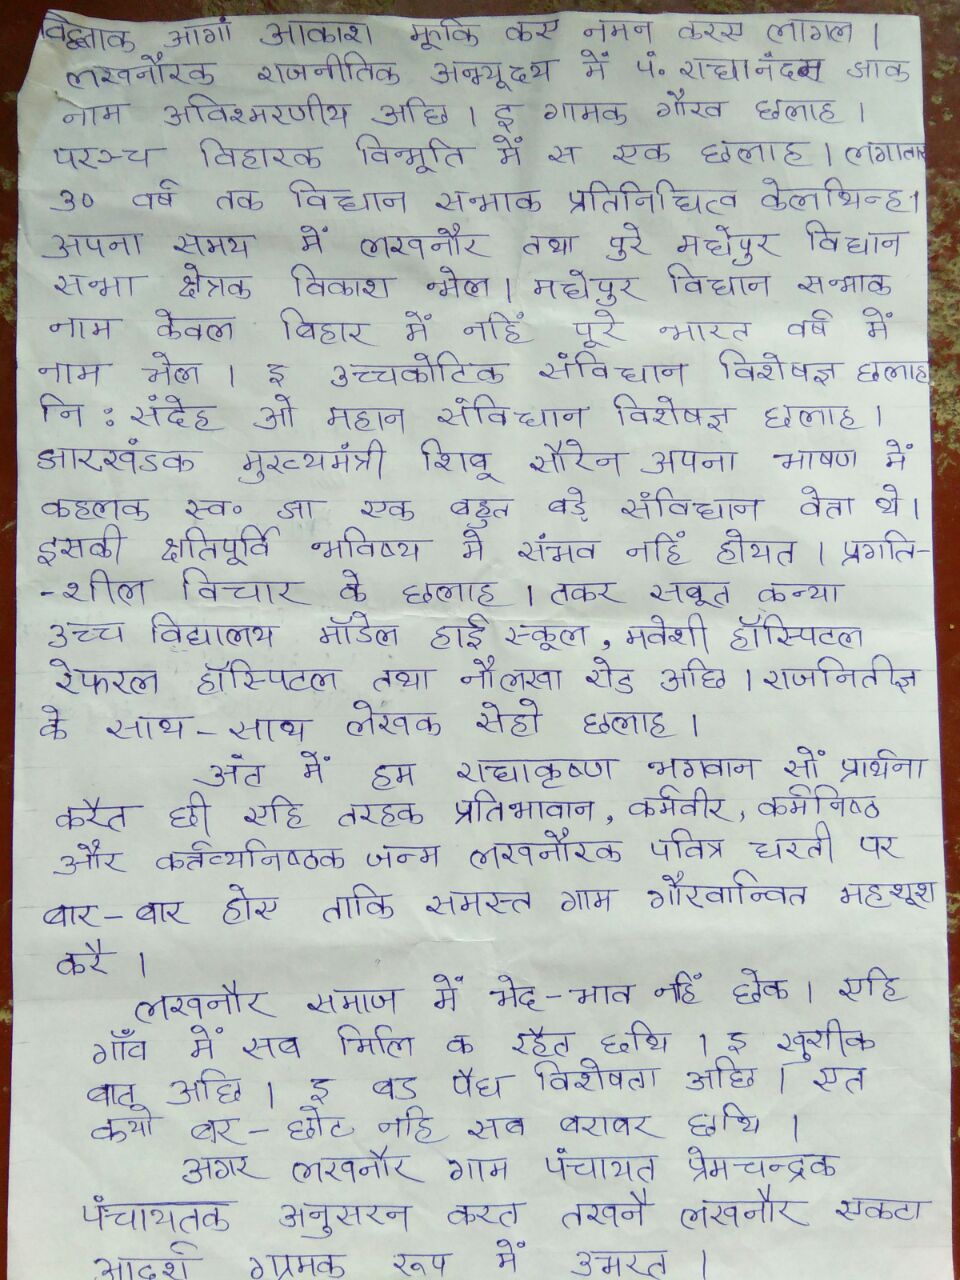 विद्वताक आगाँ आकाश झूकि कए नमन करए लागल ।
लखनौरक राजनीतिक अभ्यूदय में पं. राधानंदन झाक
नाम अविश्मरणीय अछि । इ गामक गौरव छलाह ।
परञ्च विहारक विभूति में स एक छलाह । लगातार
30 वर्ष तक विधान सभाक प्रतिनिधित्व केलथिन्ह ।
अपना समय में लखनौर तथा पुरे मधेपुर विधान
सभा क्षेत्रक विकाश भेल । मधेपुर विधान सभाक
नाम केवल विहार में नहिं पूरे भारत वर्ष में
नाम भेल । इ उच्चकोटिक संविधान विशेषज्ञ छलाह
नि : संदेह ओ महान संविधान विशेषज्ञ छलाह ।
झारखंडक मुख्यमंत्री शिबू सौरेन अपना भाषण में
कहलक स्व० झा एक बहुत बड़े संविधान वेता थे ।
इसकी क्षतिपूर्ति भविष्य में संभव नहिं होयत । प्रगति-
-शील विचार के छलाह । तकर सबूत कन्या
उच्च विद्यालय मॉडेल हाई स्कूल, मवेशी हॉस्पिटल
रेफरल हॉस्पिटल तथा नौलखा रोड अछि । राजनितीज्ञ
के साथ-साथ लेखक सेहो छलाह ।
अंत में हम राधाकृष्ण भगवान सों प्रार्थना
करैत छी एहि तरहक प्रतिभावान, कर्मवीर, कर्मनिष्ठ
और कर्तव्यनिष्ठक जन्म लखनौरक पवित्र धरती पर
बार-बार होए ताकि समस्त गाम गौरवान्वित महशूश
करै ।
लखनौर समाज में भेद-भाव नहिं छैक । एहि
गाँव में सब मिलि क रहैत छथि । इ खुशीक
बात अछि । इ बड पैघ विशेषता अछि । एत
कियो बर-छोट नहि सब बराबर छथि ।
अगर लखनौर गाम पंचायत प्रेमचन्द्रक
पंचायतक अनुसरन करत तखनै लखनौर एकटा
आदर्श ग्रामक रूप में उभरत ।